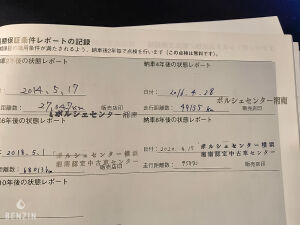 保証条件レポートの記録
適用条件が満たされるよう、納車後2年毎で点検を行います(この点検は無料です)。
年後の状態レポート
納車4年後の状態レポート
2014. 5. 17
日付: 2016. 4. 28
距離数: 27,047km
ポルシェセンター湘南
販売店印
走行距離数: 49135km
ポルシェセンター湘南
販売店印
6年後の状態レポート
納車8年後の状態レポート
2018. 5. 1
ポルシェセンター横浜
湘南認定中古車センター
距離数: 68013km
販売店印
日付: 2020. 4. 15
ポルシェセンター横浜
湘南認定中古車センター
走行距離数:
販売店印
10年後の状態レポート
BENZIN